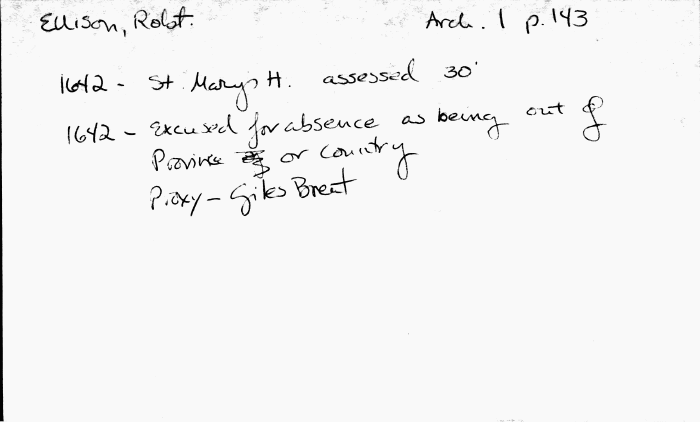 Ellison, Robt. Arch. 1 p. 143
1642 - St. Mary's H. assessed 30'
1642 - Excused for absence as being out of
Province or country
Proxy - Giles Brent